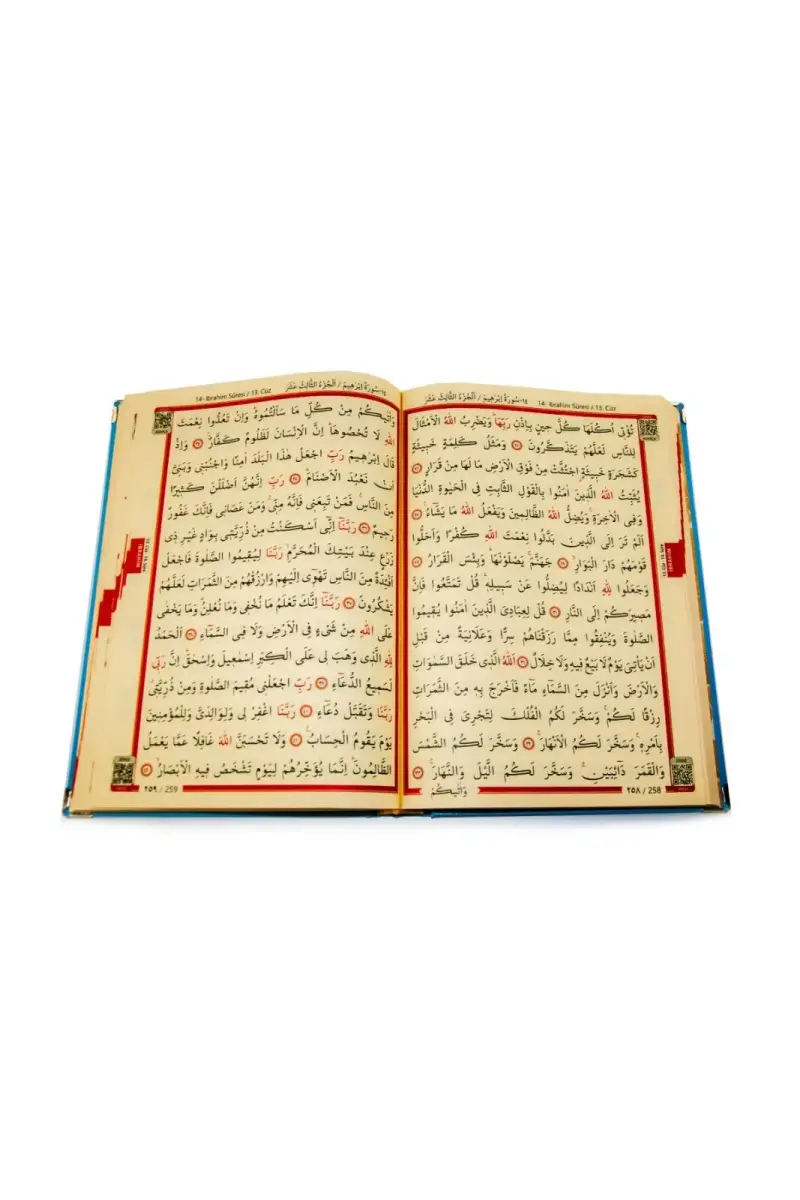 14- İbrahim Sûresi / 13. Cüz
١٤-سُورَةُ اِبْرٰهِيمَ / اَلْجُزْءُ الثَّالِثَ عَشَرَ
تُؤْتٖٓي اُكُلَهَا كُلَّ حٖينٍ بِاِذْنِ رَبِّهَاؕ وَيَضْرِبُ اللّٰهُ الْاَمْثَالَ
لِلنَّاسِ لَعَلَّهُمْ يَتَذَكَّرُونَ ﴿٢٥﴾ وَمَثَلُ كَلِمَةٍ خَبٖيثَةٍ
كَشَجَرَةٍ خَبٖيثَةٍۨ اجْتُثَّتْ مِنْ فَوْقِ الْاَرْضِ مَا لَهَا مِنْ قَرَارٍ ﴿٢٦﴾
يُثَبِّتُ اللّٰهُ الَّذٖينَ اٰمَنُوا بِالْقَوْلِ الثَّابِتِ فِي الْحَيٰوةِ الدُّنْيَا
وَفِي الْاٰخِرَةِۚ وَيُضِلُّ اللّٰهُ الظَّالِمٖينَ وَيَفْعَلُ اللّٰهُ مَا يَشَٓاءُ ﴿٢٧﴾
اَلَمْ تَرَ اِلَى الَّذٖينَ بَدَّلُوا نِعْمَتَ اللّٰهِ كُفْرًا وَاَحَلُّوا
قَوْمَهُمْ دَارَ الْبَوَارِۙ ﴿٢٨﴾ جَهَنَّمَۚ يَصْلَوْنَهَاؕ وَبِئْسَ الْقَرَارُ ﴿٢٩﴾
وَجَعَلُوا لِلّٰهِ اَنْدَادًا لِيُضِلُّوا عَنْ سَبٖيلِهٖؕ قُلْ تَمَتَّعُوا فَاِنَّ
مَصٖيرَكُمْ اِلَى النَّارِ ﴿٣٠﴾ قُلْ لِعِبَادِيَ الَّذٖينَ اٰمَنُوا يُقٖيمُوا
الصَّلٰوةَ وَيُنْفِقُوا مِمَّا رَزَقْنَاهُمْ سِرًّا وَعَلَانِيَةً مِنْ قَبْلِ
اَنْ يَأْتِيَ يَوْمٌ لَا بَيْعٌ فٖيهِ وَلَا خِلَالٌ ﴿٣١﴾ اَللّٰهُ الَّذٖي خَلَقَ السَّمٰوَاتِ
وَالْاَرْضَ وَاَنْزَلَ مِنَ السَّمَٓاءِ مَٓاءً فَاَخْرَجَ بِهٖ مِنَ الثَّمَرَاتِ
رِزْقًا لَكُمْۚ وَسَخَّرَ لَكُمُ الْفُلْكَ لِتَجْرِيَ فِي الْبَحْرِ
بِاَمْرِهٖۚ وَسَخَّرَ لَكُمُ الْاَنْهَارَۚ ﴿٣٢﴾ وَسَخَّرَ لَكُمُ الشَّمْسَ
وَالْقَمَرَ دَٓائِبَيْنِۚ وَسَخَّرَ لَكُمُ الَّيْلَ وَالنَّهَارَۚ ﴿٣٣﴾
وَاٰتٰيكُمْ
٢٥٨ / 258
14- İbrahim Sûresi / 13. Cüz
١٤-سُورَةُ اِبْرٰهِيمَ / اَلْجُزْءُ الثَّالِثَ عَشَرَ
وَاٰتٰيكُمْ مِنْ كُلِّ مَا سَاَلْتُمُوهُؕ وَاِنْ تَعُدُّوا نِعْمَتَ
اللّٰهِ لَا تُحْصُوهَاؕ اِنَّ الْاِنْسَانَ لَظَلُومٌ كَفَّارٌ ﴿٣٤﴾ وَاِذْ
قَالَ اِبْرٰهٖيمُ رَبِّ اجْعَلْ هٰذَا الْبَلَدَ اٰمِنًا وَاجْنُبْنٖي وَبَنِيَّ
اَنْ نَعْبُدَ الْاَصْنَامَؕ ﴿٣٥﴾ رَبِّ اِنَّهُنَّ اَضْلَلْنَ كَثٖيرًا
مِنَ النَّاسِۚ فَمَنْ تَبِعَنٖي فَاِنَّهُ مِنّٖيۚ وَمَنْ عَصَانٖي فَاِنَّكَ غَفُورٌ
رَحٖيمٌ ﴿٣٦﴾ رَبَّنَٓا اِنّٖٓي اَسْكَنْتُ مِنْ ذُرِّيَّتٖي بِوَادٍ غَيْرِ ذٖي
زَرْعٍ عِنْدَ بَيْتِكَ الْمُحَرَّمِۙ رَبَّنَا لِيُقٖيمُوا الصَّلٰوةَ فَاجْعَلْ
اَفْـِٔدَةً مِنَ النَّاسِ تَهْوٖٓي اِلَيْهِمْ وَارْزُقْهُمْ مِنَ الثَّمَرَاتِ لَعَلَّهُمْ
يَشْكُرُونَ ﴿٣٧﴾ رَبَّنَٓا اِنَّكَ تَعْلَمُ مَا نُخْفٖي وَمَا نُعْلِنُؕ وَمَا يَخْفٰى
عَلَى اللّٰهِ مِنْ شَيْءٍ فِي الْاَرْضِ وَلَا فِي السَّمَٓاءِ ﴿٣٨﴾ اَلْحَمْدُ
لِلّٰهِ الَّذٖي وَهَبَ لٖي عَلَى الْكِبَرِ اِسْمٰعٖيلَ وَاِسْحٰقَؕ اِنَّ رَبّٖي
لَسَمٖيعُ الدُّعَٓاءِ ﴿٣٩﴾ رَبِّ اجْعَلْنٖي مُقٖيمَ الصَّلٰوةِ وَمِنْ ذُرِّيَّتٖيۗ
رَبَّنَا وَتَقَبَّلْ دُعَٓاءِ ﴿٤٠﴾ رَبَّنَا اغْفِرْ لٖي وَلِوَالِدَيَّ وَلِلْمُؤْمِنٖينَ
يَوْمَ يَقُومُ الْحِسَابُ ﴿٤١﴾ وَلَا تَحْسَبَنَّ اللّٰهَ غَافِلًا عَمَّا يَعْمَلُ
الظَّالِمُونَؕ اِنَّمَا يُؤَخِّرُهُمْ لِيَوْمٍ تَشْخَصُ فٖيهِ الْاَبْصَارُۙ ﴿٤٢﴾
٢٥٩ / 259